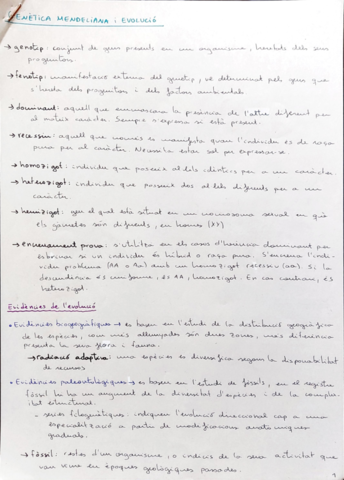 GENÈTICA MENDELIANA i EVOLUCIÓ
→ genotip: conjunt de gens presents en un organisme, heretats dels seus
progenitors.
→ fenotip: manifestació externa del genotip, ve determinat pels gens que
s'hereda dels progenitors i dels factors ambientals.
→ dominant: aquell que emmascara la presència de l'altre diferent per
al mateix caràcter. Sempre s'expressa si està present.
→ recessiu: aquell que només es manifesta quan l'individu és de raça
pura per al caràcter. Necessita estar sol per expressar-se.
→ homozigot: individu que posseix al·lels idèntics per a un caràcter
→ heterozigot: individu que posseix dos al·lels diferents per a un
caràcter
→ hemizigot: gen el qual està situat en un cromosoma sexual en què
els gàmetes són diferents, en homes (XY)
→ encreuament prova: s'utilitza en els casos d'herència dominant per
esbrinar si un individu és híbrid o raça pura. S'encreua l'indi-
vidu problema (AA o Aa) amb un homozigot recessiu (aa). Si la
descendència és uniforme, és AA, homozigot. En cas contrari, és
heterozigot.
Evidències de l'evolució
• Evidències biogeogràfiques → es basen en l'estudi de la distribució geogràfica
de les espècies, com més allunyades són dues zones, més diferències
presenta la seva flora i fauna.
→ radiació adaptativa: una espècie es diversifica segons la disponibilitat
de recursos
• Evidències paleontològiques → es basen en l'estudi de fòssils, en el registre
fòssil hi ha un augment de la diversitat d'espècies i de la comple-
xitat estructural.
- sèries filogenètiques: indiquen l'evolució direccional cap a una
especialització a partir de modificacions anatòmiques
graduals.
→ fòssil: restes d'un organisme, o indicis de la seva activitat que
van viure en èpoques geològiques passades.
1